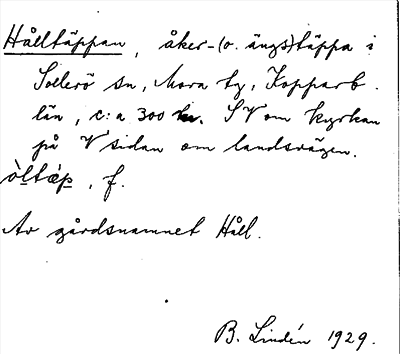 Hålltäppan, åker-(o. ängs)täppa i
Sollerö sn, Mora tg, Kopparb.
län, c:a 300 m. SV om kyrkan
på V sidan om landsvägen.
òltε̨p, f.
Av gårdsnamnet Håll.
B. Lindén 1929.